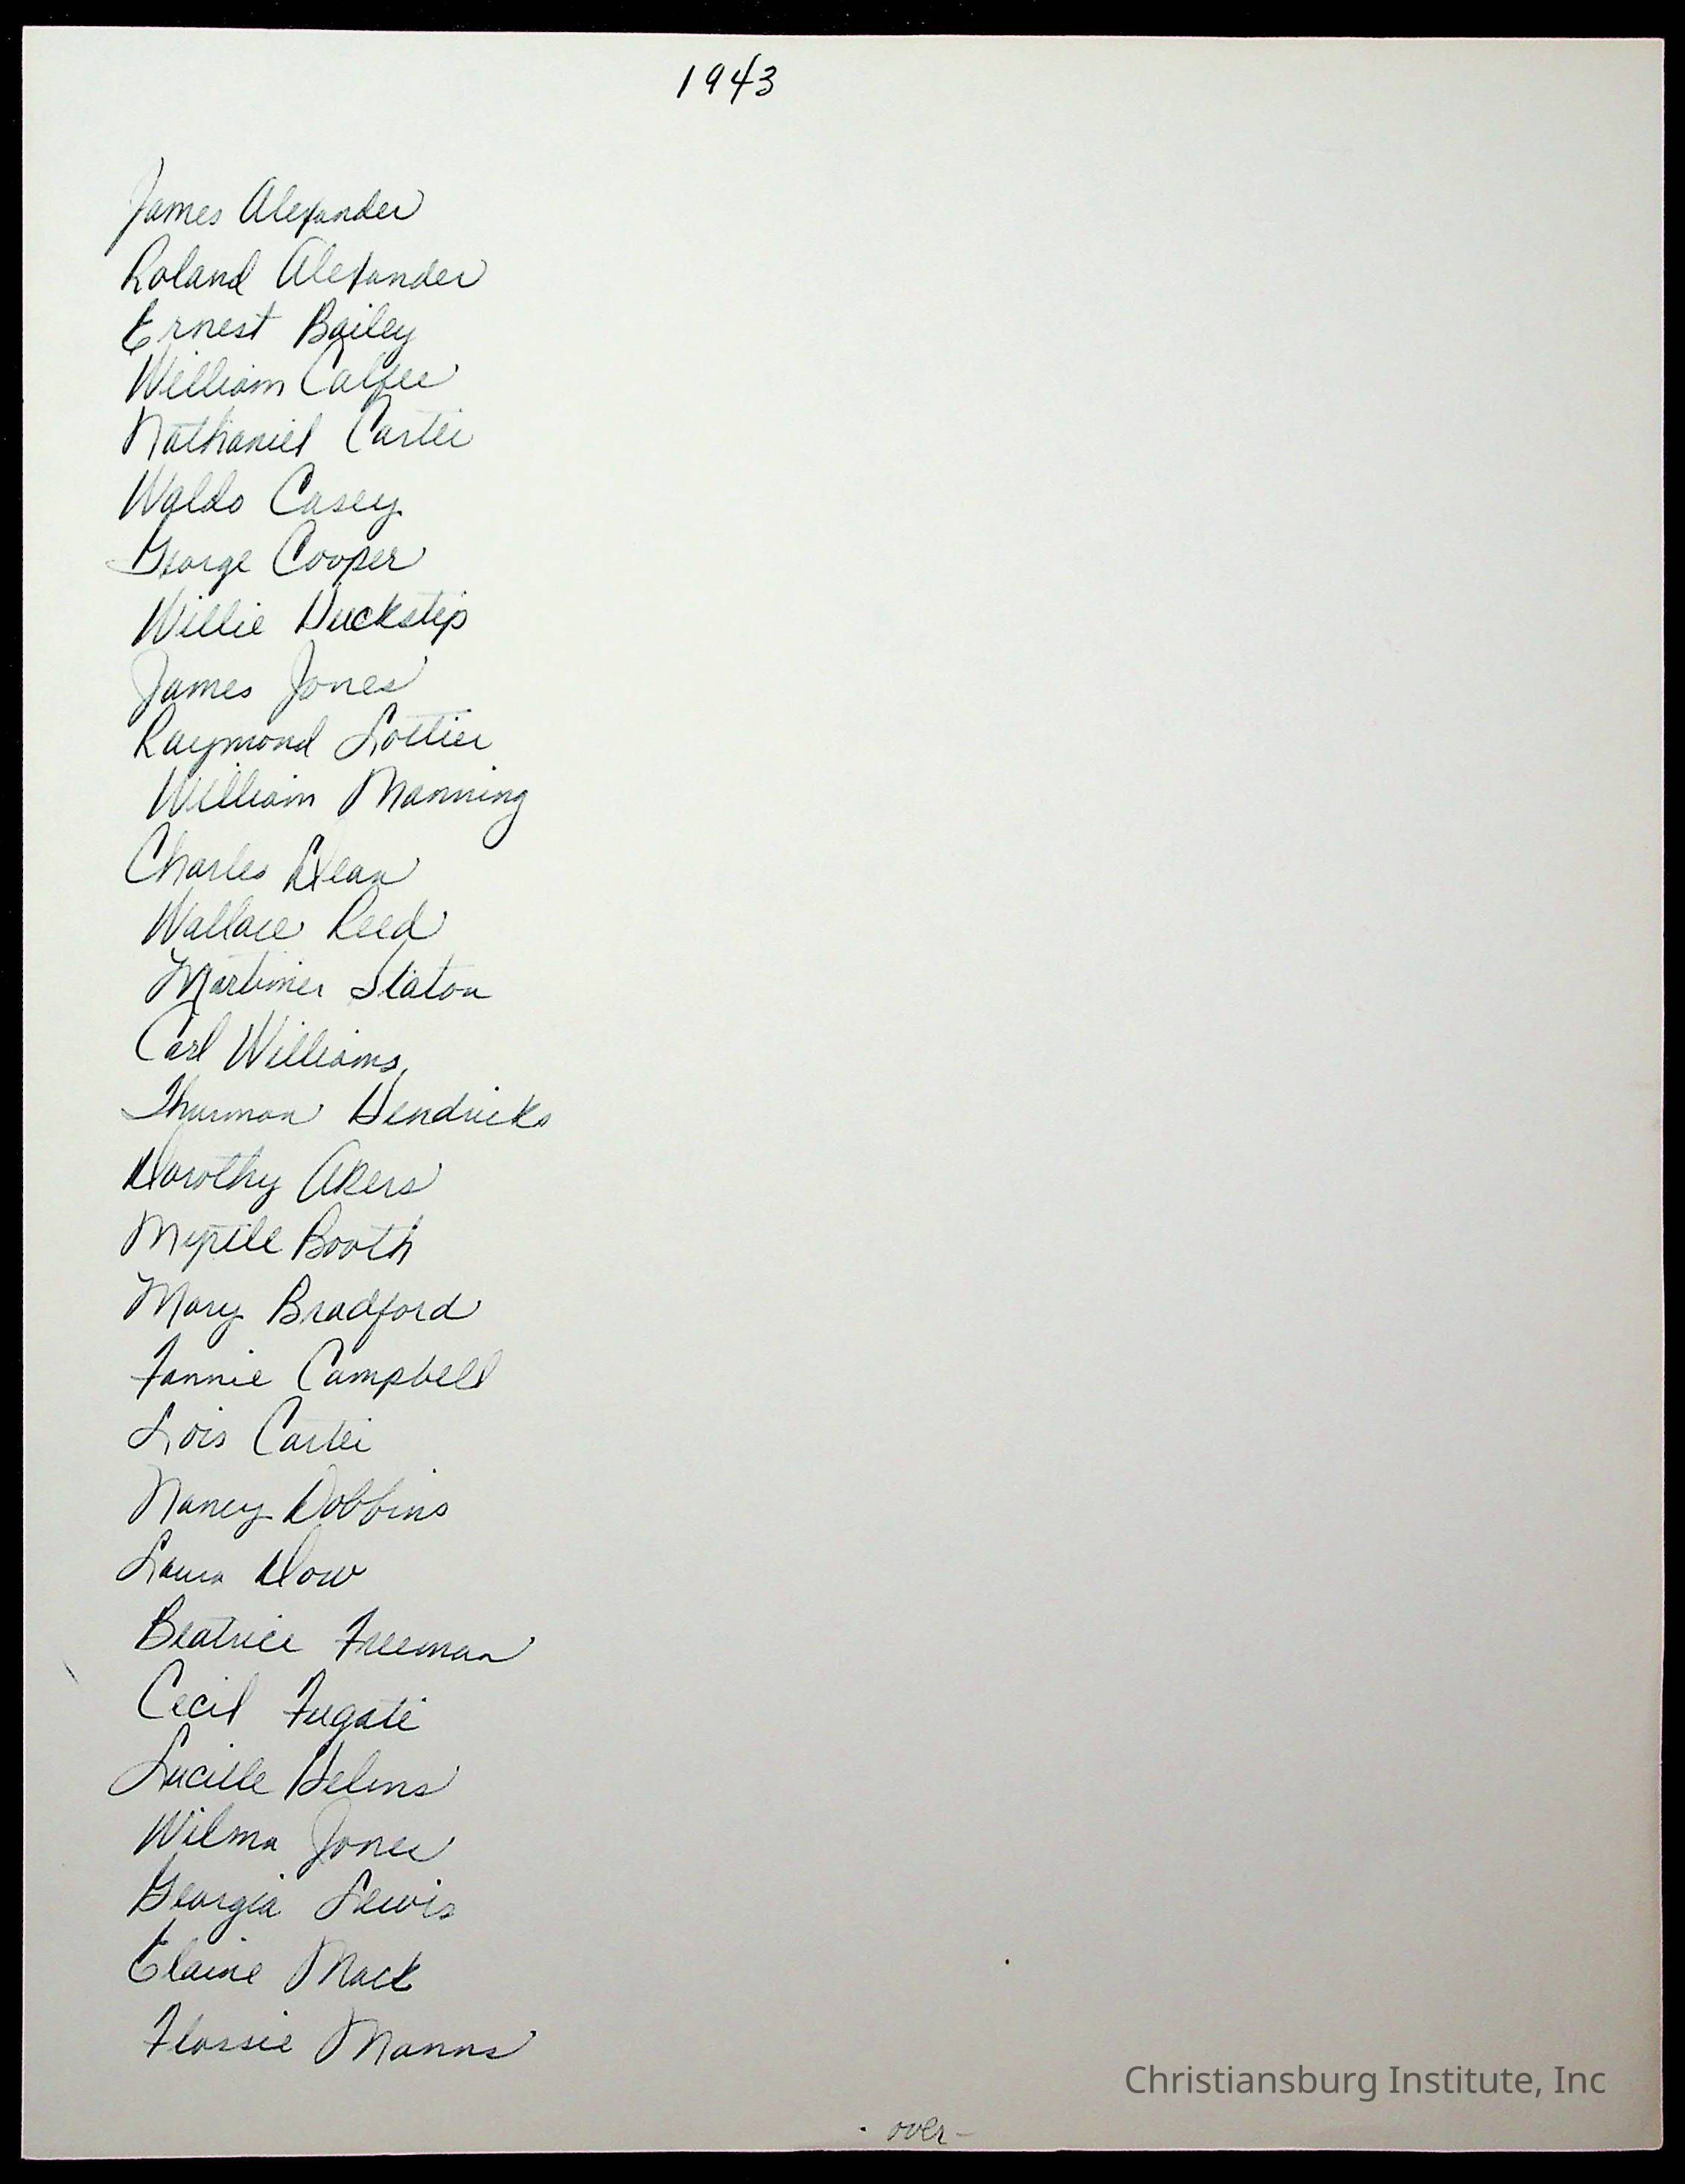 1943
James Alexander
Roland Alexander
Ernest Bailey
William Calfee
Nathaniel Carter
Waldo Casey
George Cooper
Willie Huckstep
James Jones
Raymond Lottier
William Manning
Charles Dean
Wallace Reed
Mortimer Staton
Carl Williams
Thurman Hendricks
Dorothy Akers
Myrtle Booth
Mary Bradford
Fannie Campbell
Lois Carter
Nancy Dobbins
Laura Dow
Beatrice Freeman
Cecil Fugate
Lucille Helms
Wilma Jones
Georgia Lewis
Elaine Mack
Flossie Manns
Christiansburg Institute, Inc
- over -